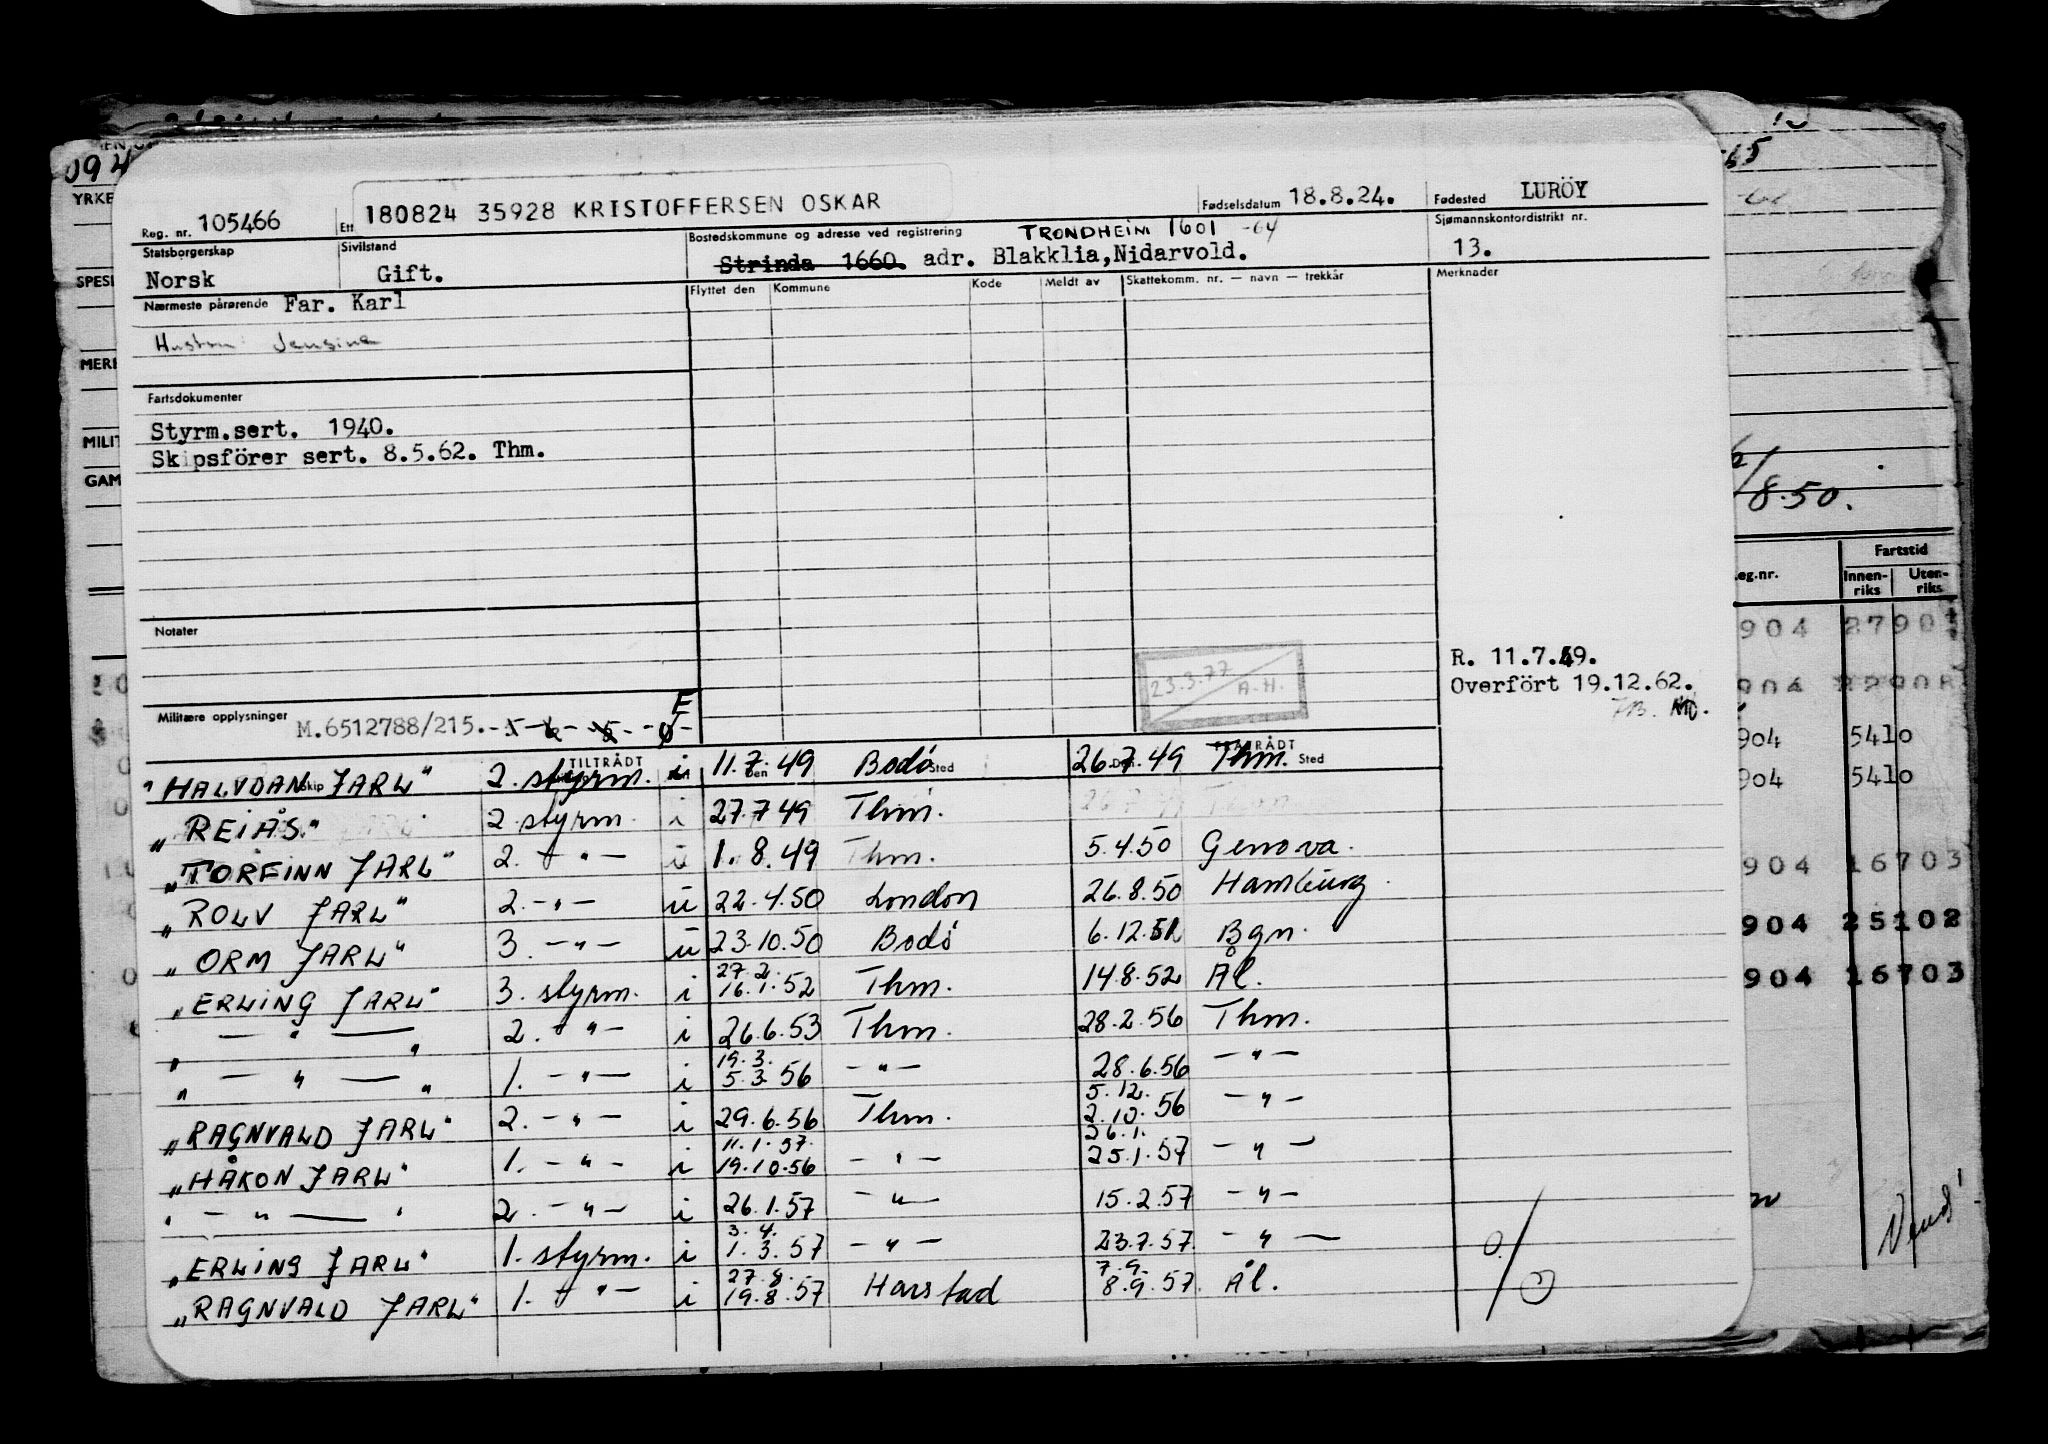 Reg. nr. 105466 Ett 180824 35928 KRISTOFFERSEN OSKAR Fødselsdatum 18.8.24. Fødested LURÖY
Statsborgerskap Norsk Sivilstand Gift. Bostedskommune og adresse ved registrering TRONDHEIM 1601 -64 Strinda 1660. adr. Blakklia,Nidarvold. Sjømannskontordistrikt nr. 13.
Nærmeste pårørende Far. Karl Flyttet den Kommune Kode Meldt av Skattekomm. nr. — navn — trekkår Merknader
Hustru: Jensine
Fartsdokumenter
Styrm.sert. 1940.
Skipsförer sert. 8.5.62. Thm.
Notater
23.3.77
A.H.
R. 11.7.49.
Overfört 19.12.62.
Militære opplysninger M.6512788/215.
Skip TILTRÅDT Den Sted FRATRÅDT Den Sted
"HALVDAN JARL" 2. styrm. i 11.7.49 Bodö 26.7.49 Thm.
"REIÅS" 2 styrm. i 27.7 49 Thm.
"TORFINN JARL" 2. — " — u 1.8.49 Thm. 5.4.50 Genova.
"ROLV JARL" 2. — " — u 22.4.50 London 26.8.50 Hamburg.
"ORM JARL" 3. — " — u 23.10.50 Bodö 6.12.51 Bgn.
27.2.
"ERLING JARL" 3. styrm. i 16.1.52 Thm. 14.8.52 Ål.
" — " — " 2. — " — i 26.6.53 Thm. 28.2.56 Thm.
19.3.
" — " — " 1. — " — i 5.3.56 — " — 28.6.56 — " —
5.12.
"RAGNVALD JARL" 2. — " — i 29.6.56 Thm. 2.10.56 — " —
11.1.57. 26.1.
"HÅKON JARL" 1. — " — i 19.10.56 — " — 25.1.57 — " —
" — " — " 2. — " — i 26.1.57 — " — 15.2.57 — " —
3.4.
"ERLING JARL" 1. styrm. i 1.3.57 — " — 23.7.57 — " —
27.8. 7.9.
"RAGNVALD JARL" 1. — " — i 19.8.57 Harstad 8.9.57. Ål.
094
YRKE
SPESI
MERK
MILIT
GAM
8.50.
Fartstid
eg.nr. Innen-riks Uten-riks
904 27903
904 22908
904 5410
904 5410
904 16703
904 25102
904 16703
Vend!